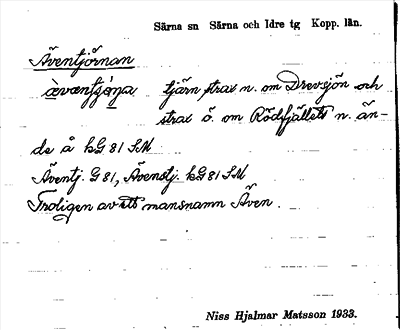 Särna sn Särna och Idre tg Kopp. län.
Äventjörnan
tjärn strax n. om Drevsjön och
strax ö. om Rödfjällets n. än-
de å kG 81 SM
Äventj. G 81, Ävenstj. kG 81 SM
Troligen av ett mansnamn Även.
Niss Hjalmar Matsson 1933.